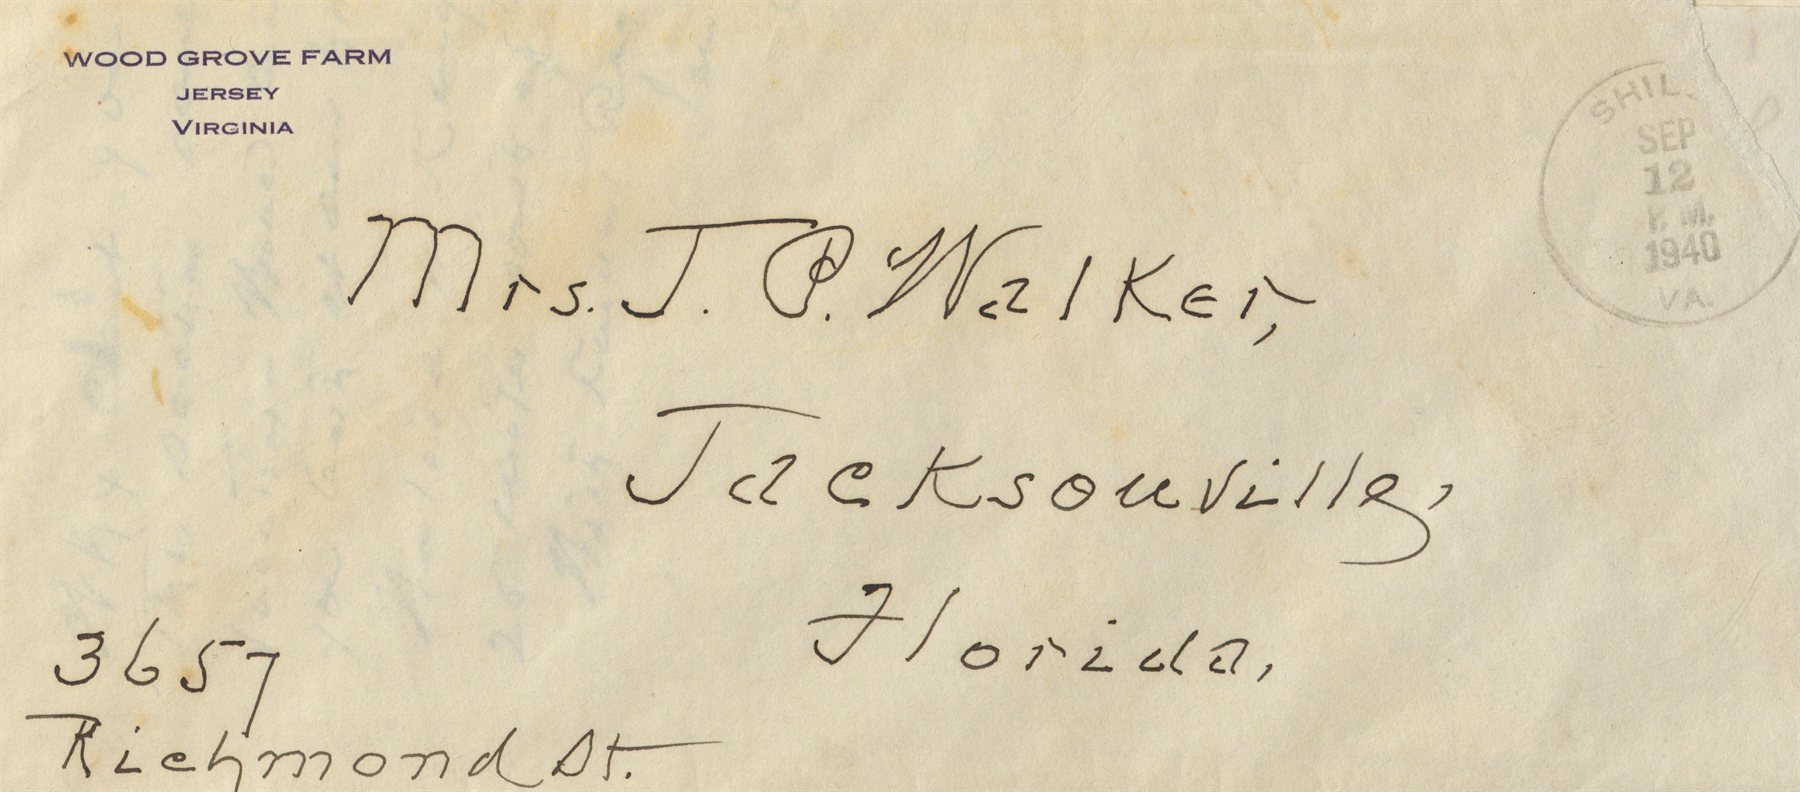 WOOD GROVE FARM
JERSEY
VIRGINIA
SHIL
SEP
12
P. M.
1940
VA.
Mrs. J. P. Walker,
Jacksonville,
Florida,
3657
Richmond St.